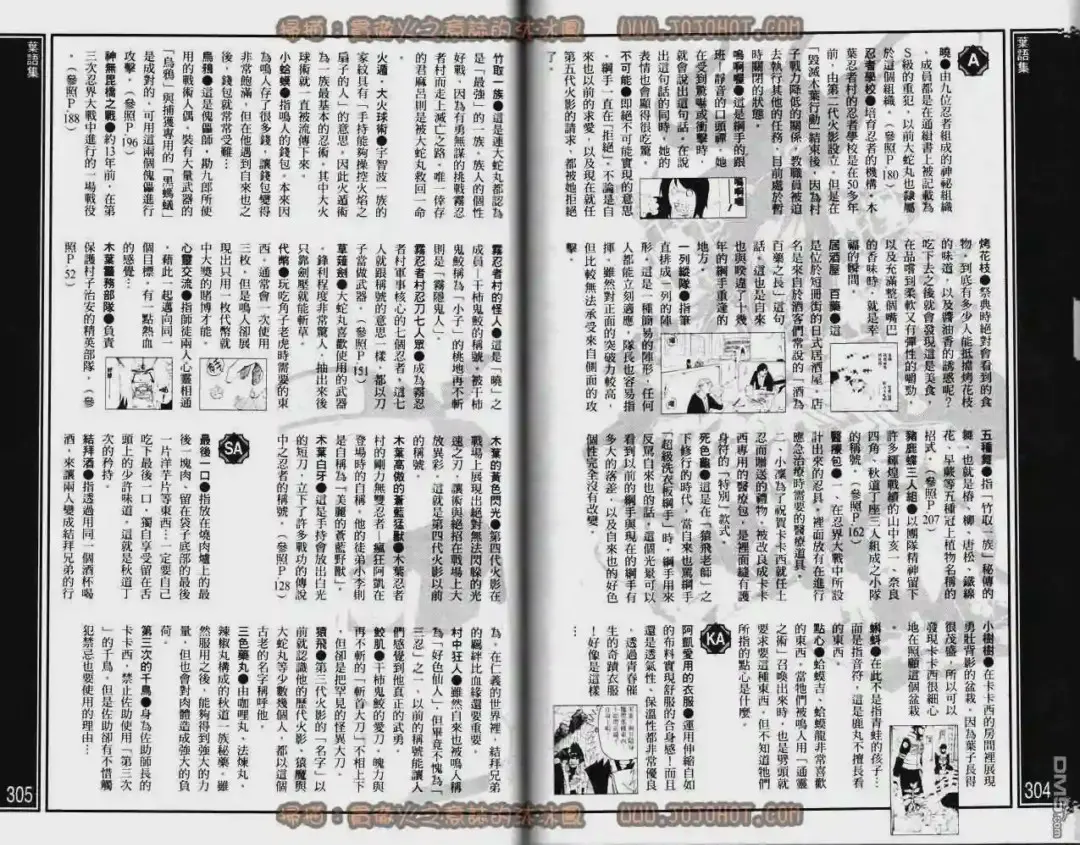 掃描：最後火之意誌的沐沐鳳 WWW.JOJOHOT.COM
葉語集
A
曉●由九位忍者組成的神秘組織
，成員都是在通緝書上被記載為
S級的重犯，以前大蛇丸也隸屬
於這個組織。（參照P180）
忍者學校●培育忍者的機構。木
葉忍者村的忍者學校是在50多年
前，由第二代火影設立，但是在
「毀滅木葉行動」結束後，因為村
子戰力降低的關係，教職員被迫
去執行其他的任務，目前處於暫
時關閉的狀態。
嗚喔喔●這是綱手的跟
班！靜音的口頭禪。她
在受到驚嚇或衝擊時，
就會說出這句話。在說
出這句話的同時，她的
表情也會顯得很吃驚。
嗚喔喔
不可能●即絕不可能實現的意思
，綱手一直在「拒絕」，不論是自
來也以前的求愛，以及現在就任
第五代火影的請求，都被她拒絕
了。
烤花枝●祭典時絕對會看到的食
物，到底有多少人能抵擋烤花枝
的味道，以及醬油香的誘惑呢？
吃下去之後就會發現這是美食，
在品嚐到柔軟又有彈性的嚼勁，
以及充滿整個嘴巴
的香味時，就是幸
福的瞬間。
居酒屋 百藥●這
是位於短冊街的日式居酒屋，店
名是來自於酒客們常說的「酒為
百藥之長」這句
話。這也是自來
也與睽違了十幾
年的綱手重逢的
地方。
一列縱隊●指筆
直排成一列的陣
形，這是一種簡易的陣形，任何
人都能立刻適應，隊長也容易指
揮，雖然對正面的突破力較高，
但比較無法承受來自側面的攻
擊。
五種舞●指「竹取一族」秘傳的
舞，也就是椿、柳、唐松、鐵線
花、早蕨等五種冠上植物名稱的
招式。（參照P207）
豬鹿蝶三人組●以團隊精神留下
許多輝煌戰績的山中亥一、奈良
四角、秋道丁座三人組成之小隊
的稱號。（參照P162）
醫療包●一、在忍界大戰中所設
計出來的忍具，裡面放有在進行
應急治療時需要的醫療道具。
二、小濱為了祝賀卡卡西就任上
忍而贈送的禮物，被改良成卡卡
西專用的醫療包，是裡面縫有護
身符的「特別」款式。
死色龜●這是在「猿飛老師」之
下修行的時代，當自來也罵綱手
「超級洗衣板綱手」時，綱手用來
反罵自來也的話，這個光景可以
看到以前的綱手與現在的綱手有
多大的落差，以及自來也的好色
個性完全沒有改變。
小樹樹●在卡卡西的房間裡展現
勇壯背影的盆栽，因為葉子長得
很茂盛，所以可以
發現卡卡西很細心
地在照顧這個盆栽
。
蝌蚪●在此不是指青蛙的孩子…
而是指音符，這是鹿丸不擅長看
的東西。
點心●蛤蟆吉、蛤蟆龍非常喜歡
的東西，當牠們被鳴人用「通靈
之術」召喚出來時，也是劈頭就
要求要這種東西，但不知道牠們
所指的點心是什麼。
KA
阿凱愛用的衣服●運用伸縮自如
的布料實現舒服的合身感！而且
還是透氣性、保溫性都非常優良
，透過青春催
生的奇蹟衣服
！好像是這樣
…
304
葉語集
竹取一族●這是連大蛇丸都認為
是「最強」的一族，族人的個性
好戰，因為有勇無謀的挑戰霧忍
者村而走上滅亡之路，唯一倖存
的君麻呂則是被大蛇丸救回一命
。
火遁，大火球術●宇智波一族的
家紋具有「手持能夠操控火焰之
扇子的人」的意思，因此火遁術
為一族最基本的忍術，其中大火
球術就一直被流傳下來。
小蛤蟆●指鳴人的錢包。本來因
為鳴人存了很多錢，讓錢包變得
非常飽滿，但在他遇到自來也之
後，錢包就常常受難…
烏鴉●這是傀儡師．勘九郎所使
用的戰術人偶，裝有大量武器的
「烏鴉」與捕獲專用的「黑螞蟻」
是成對的，可用這兩個傀儡進行
攻擊。（參照P196）
神無毘橋之戰●約13年前，在第
三次忍界大戰中進行的一場戰役
。（參照P188）
霧忍者村的怪人●這是「曉」之
成員－干柿鬼鮫的稱號，被干柿
鬼鮫稱為「小子」的桃地再不斬
則是「霧隱鬼人」。
霧忍者村忍刀七人眾●成為霧忍
者村軍事核心的七個忍者，這七
人就跟稱號的意思一樣，都以刀
子當做武器。（參照P151）
草薙劍●大蛇丸喜歡使用的武器
，鋒利程度非常驚人，抽出來後
只靠劍壓就能斬草。
代幣●玩吃角子老虎時需要的東
西，通常會一次使用
三枚，但是鳴人卻展
現出只用一枚代幣就
中大獎的賭博才能。
心靈交流●指師徒兩人心靈相通
，藉此一起邁向同一
個目標，有一點熱血
的感覺。
木葉警務部隊●負責
保護村子治安的精英部隊。（參
照P52）
木葉的黃色閃光●第四代火影在
戰場上展現出絕對無法閃躲的光
速之刃，讓術與絕招在戰場上大
放異彩，這就是第四代火影以前
的稱號。
木葉高傲的蒼藍猛獸●木葉忍者
村的剛力無雙忍者－瘋狂阿凱在
登場時的自稱，他的徒弟小李則
是自稱為「美麗的蒼藍野獸」。
木葉白牙●這是手持會放出白光
的短刀，立下了許多戰功的傳說
中之忍者的稱號。（參照P128）
SA
最後一口●指放在燒肉爐上的最
後一塊肉、留在袋子底部的最後
一片洋芋片等東西，一定要自己
吃下最後一口，獨自享受留在舌
頭上的少許味道，這就是秋道丁
次的矜持。
結拜酒●指透過用同一個酒杯喝
酒，來讓兩人變成結拜兄弟的行
為，在仁義的世界裡，結拜兄弟
的羈絆比血緣還要重要。
村中狂人●雖然自來也被鳴人稱
為「好色仙人」，但畢竟不愧為「
三忍」之一，以前的稱號能讓人
們感覺到他真正的武勇。
鮫肌●干柿鬼鮫的愛刀，魄力與
再不斬的「斬首大刀」不相上下
，但卻是把罕見的怪異大刀。
猿飛●第三代火影的「名字」以
前就認識他的歷代火影、猿魔與
大蛇丸等少數幾個人，都以這個
古老的名字稱呼他。
三色藥丸●由咖哩丸、法煉丸、
辣椒丸構成的秋道一族秘藥。雖
然服用之後，能夠得到強大的力
量，但也會對肉體造成強大的負
荷。
第三次的千鳥●身為佐助師長的
卡卡西，禁止佐助使用「第三次
」的千鳥，但是佐助卻有不惜觸
犯禁忌也要使用的理由…
305
掃描：最後火之意誌的沐沐鳳 WWW.JOJOHOT.COM
DM5.com